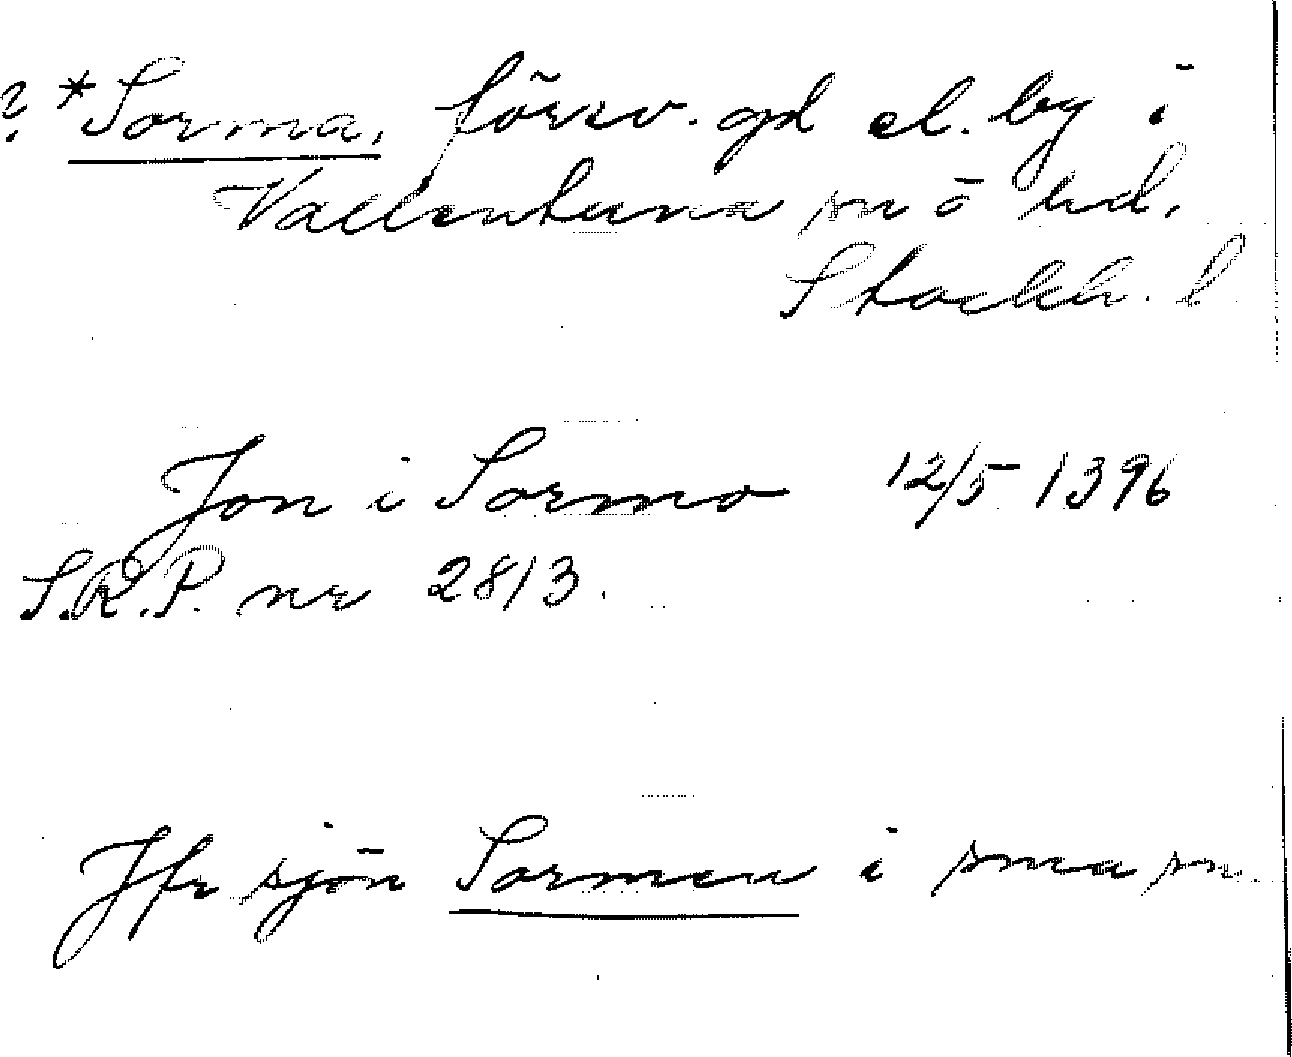 ? *Sorma, försv. gd el. by i
Vallentuna sn o hd.
Stockh. l
Jon i Sormo 12/5 1396
S.R.P. nr 2813.
Jfr sjön Sormen i sma sn